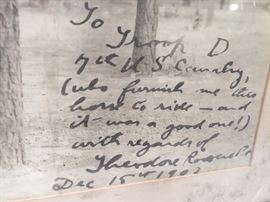 To
Troop D
7th U.S. Cavalry,
(who furnish me this
horse to ride – and
it was a good one!)
with regards of
Theodore Roosevelt
Dec 15th 1902